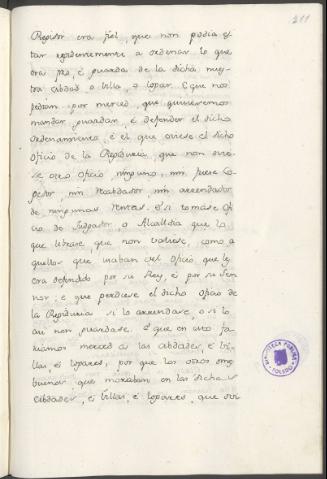 211
Regidor era fiel, que non podia es
tar residentemente a ordenar lo que
era pro, é guarda de la dicha nues
tra cibdad o Villa, o logar. E que nos
pedian por merced, que quisieremos
mandar guardar, é defender el dicho
ordenamiento, é el que oviese el dicho
oficio de la Regiduria, que non ovie-
se otro oficio, ninguno, nin fuese Co
gedor, nin Recabdador, nin arrendador
de ningunas Rentas. E si tomase ofi
cio de Judgador o Alcaldia que lo
que librase que non valiese, como a
quellos que usaban del oficio que les
era defendido por su Rey, é por su Sen
nor; e que perdiese el dicho oficio de
la Regiduria si lo arrendase, o si lo
asi non guardase. é que en esto fa
riamos merced á las cibdades, é Vi
llas, é logares, por que los otros omes
buenos que moraban en las dichas
cibdades, é Villas, é logares, que
BIBLIOTECA PUBLICA
TOLEDO